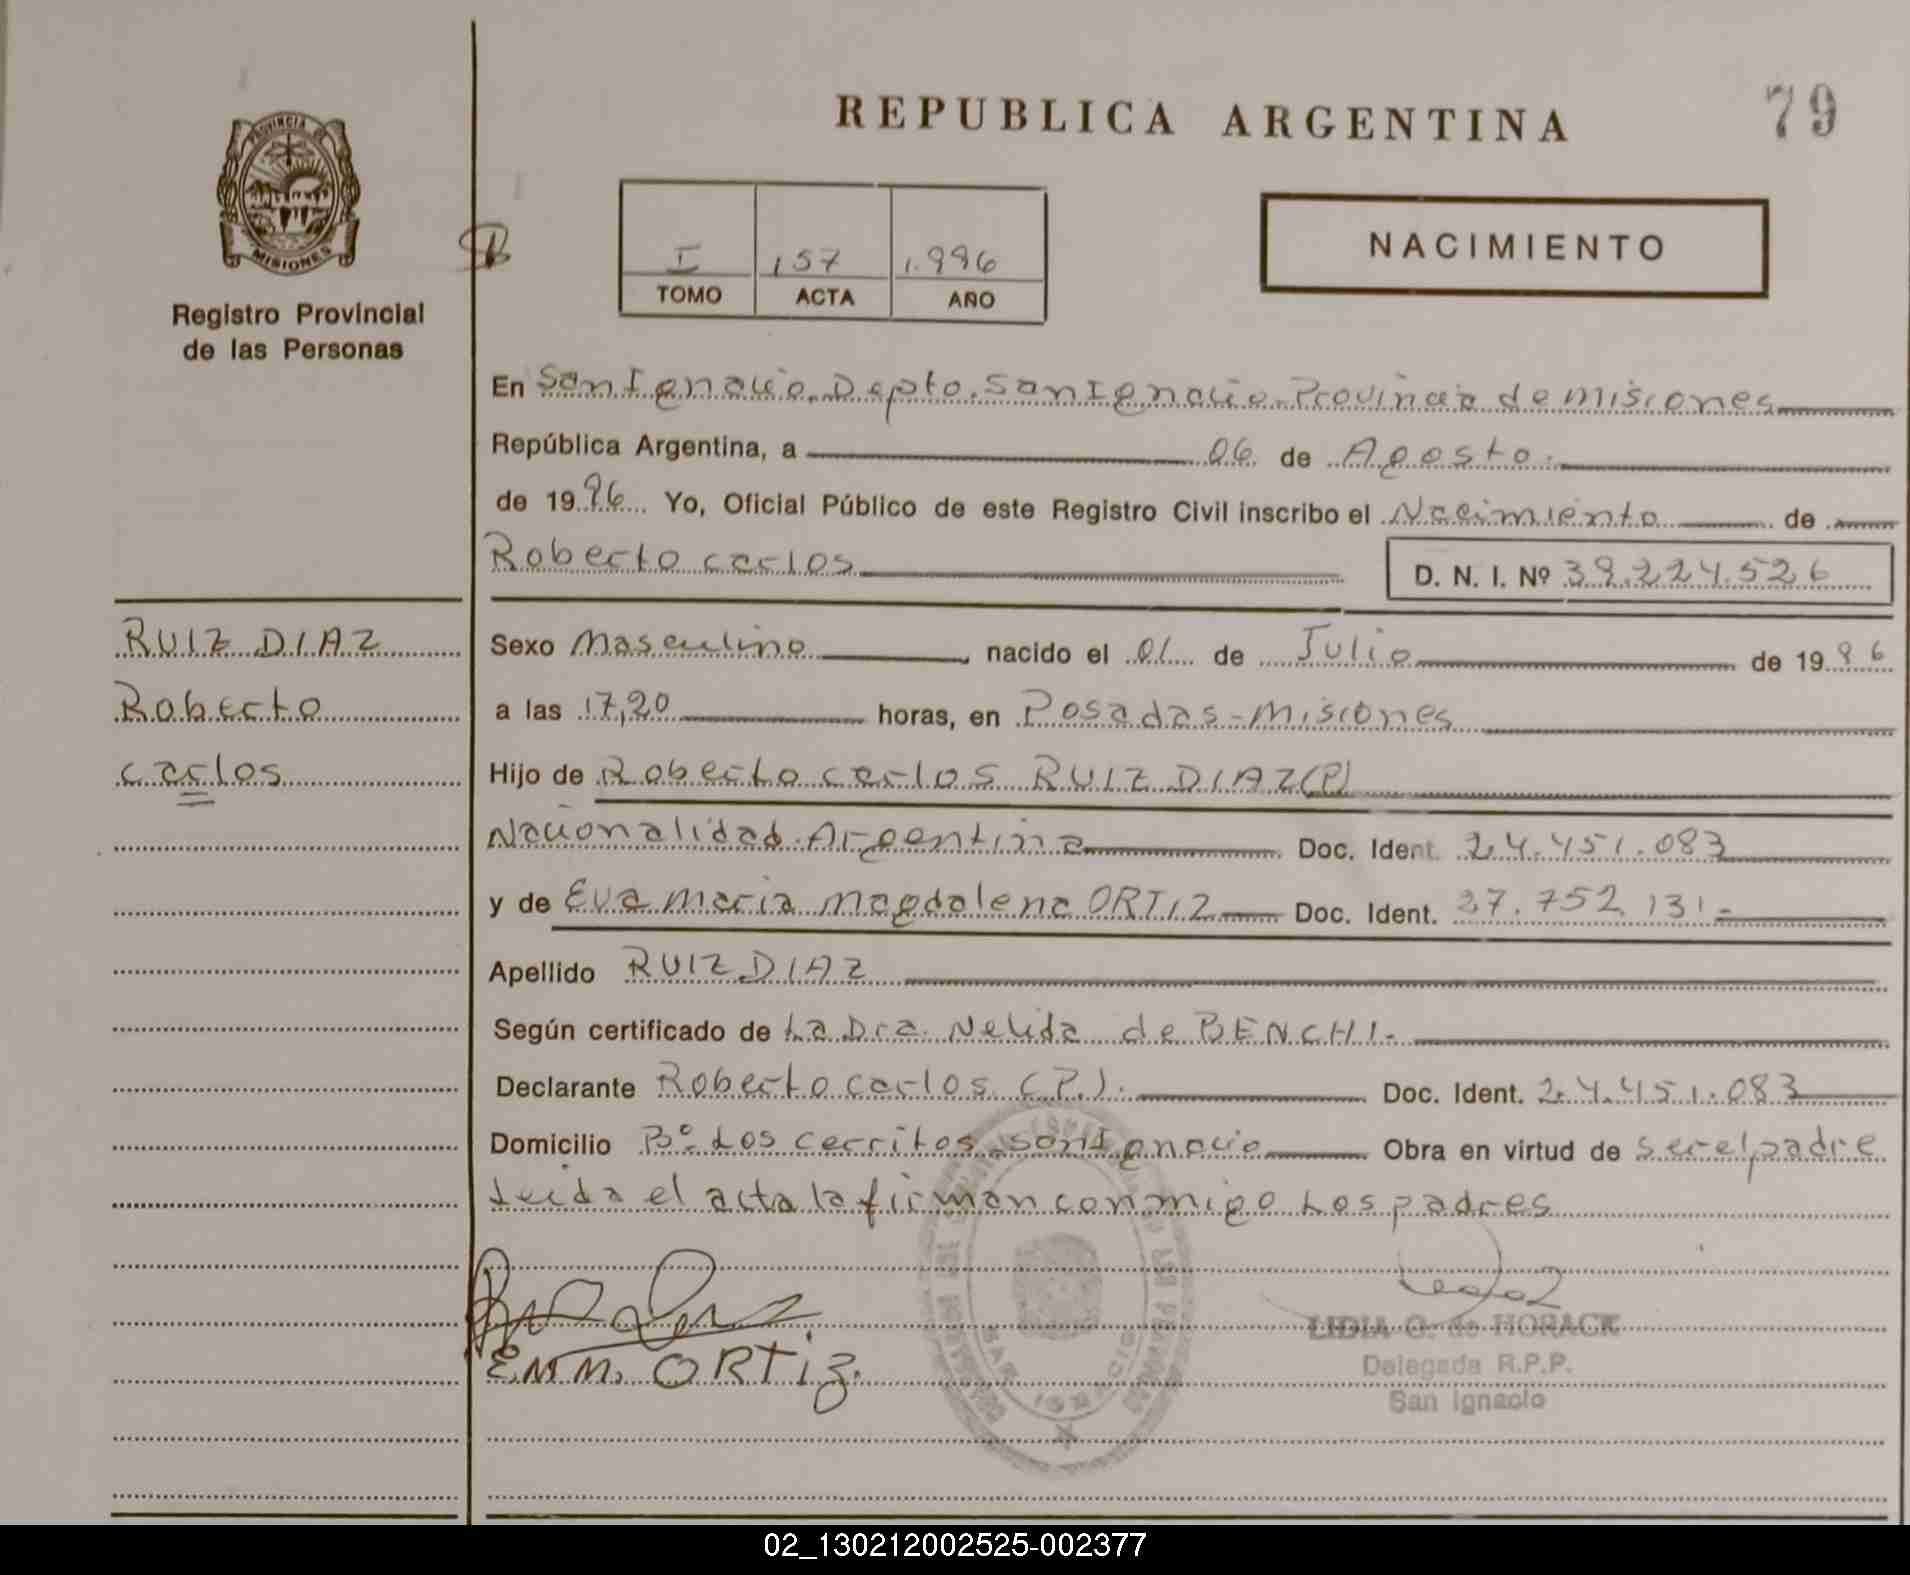 REPUBLICA ARGENTINA
79
PROVINCIA DE
MISIONES
Registro Provincial
de las Personas
I 157 1.996
TOMO ACTA AÑO
NACIMIENTO
En San Ignacio. Depto. San Ignacio. Provincia de misiones
República Argentina, a 06 de Agosto.
de 1996 Yo, Oficial Público de este Registro Civil inscribo el Nacimiento de
Roberto carlos
D. N. I. Nº 39.224.526
RUIZ DIAZ
Roberto
carlos
Sexo Masculino, nacido el 01 de Julio de 1996
a las 17,20 horas, en Posadas - Misiones
Hijo de Roberto carlos RUIZ DIAZ (P)
Nacionalidad Argentina Doc. Ident. 24.451.083
y de Eva maria magdalena ORTIZ Doc. Ident. 27.752.131-
Apellido RUIZ DIAZ
Según certificado de La Dra. Nelida de BENCHI.-
Declarante Roberto carlos (P). Doc. Ident. 24.451.083
Domicilio Bº Los cerritos. san Ignacio Obra en virtud de ser el padre
Leida el acta la firman conmigo Los padres
E.M.M. ORTiz.
SAN IGNACIO
LIDIA O. de HORACK
Delegada R.P.P.
San Ignacio
02_130212002525-002377